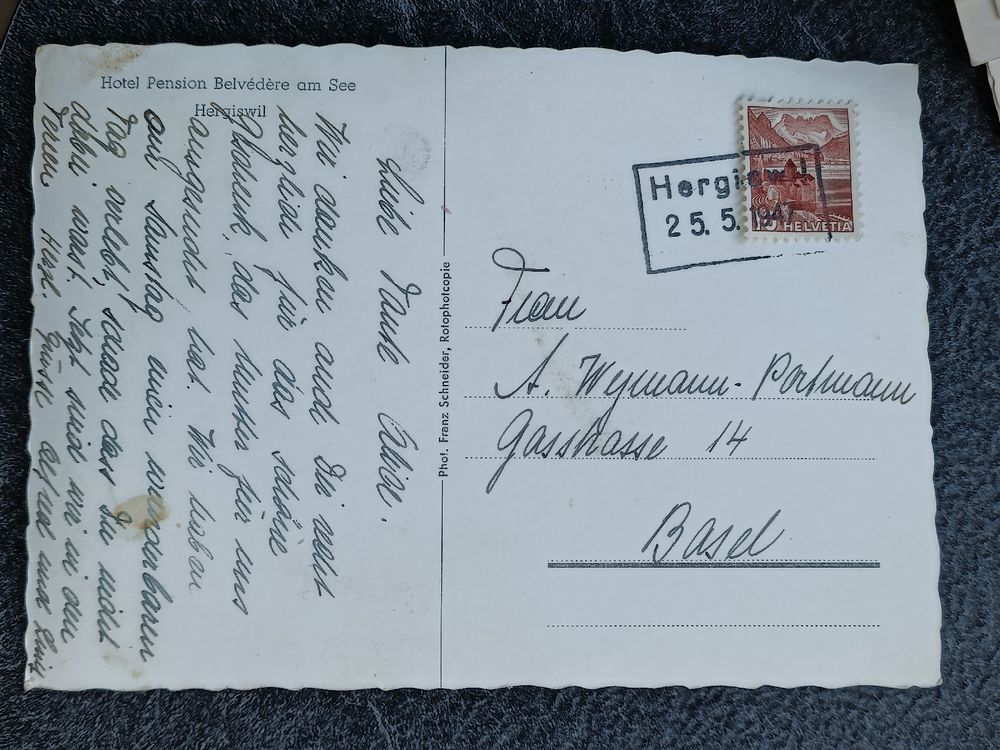 Hotel Pension Belvédère am See
Hergiswil
Liebe Tante Alice.
Wir danken auch Dir recht
herzlich für das schöne
das Mutter für uns
ausgesucht hat. Wir haben
auch Samstag einen wunderbaren
Tag erlebt, schade dass Du nicht
dabei warst. Jetzt sind wir in den
Ferien Herzl. Grüsse und
Phot. Franz Schneider, Rotophotcopie
Hergiswil
25.5.1947
10 HELVETIA
Frau
A. Wymann-Portmann
Gasstrasse 14
Basel